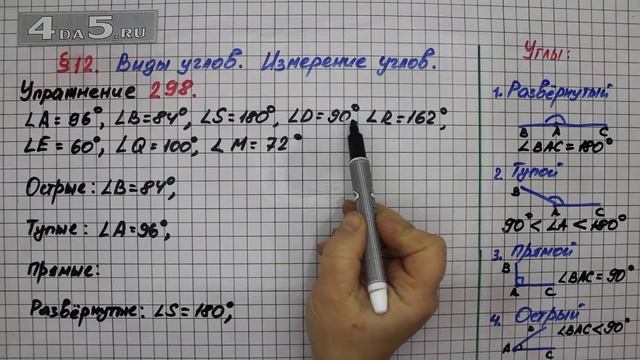 4DA5.RU
§12. Виды углов. Измерение углов.
Упражнение 298.
∠A=96°, ∠B=84°, ∠S=180°, ∠D=90° ∠R=162°,
∠E=60°, ∠Q=100°, ∠M=72°
Острые: ∠B=84°,
Тупые: ∠A=96°,
Прямые:
Развёрнутые: ∠S=180°,
Углы:
1. Развёрнутый
B A C
∠BAC=180°
2. Тупой
B
A C
90°<∠A<180°
3. Прямой
B
∠BAC=90°
A C
4. Острый
∠BAC<90°
A C